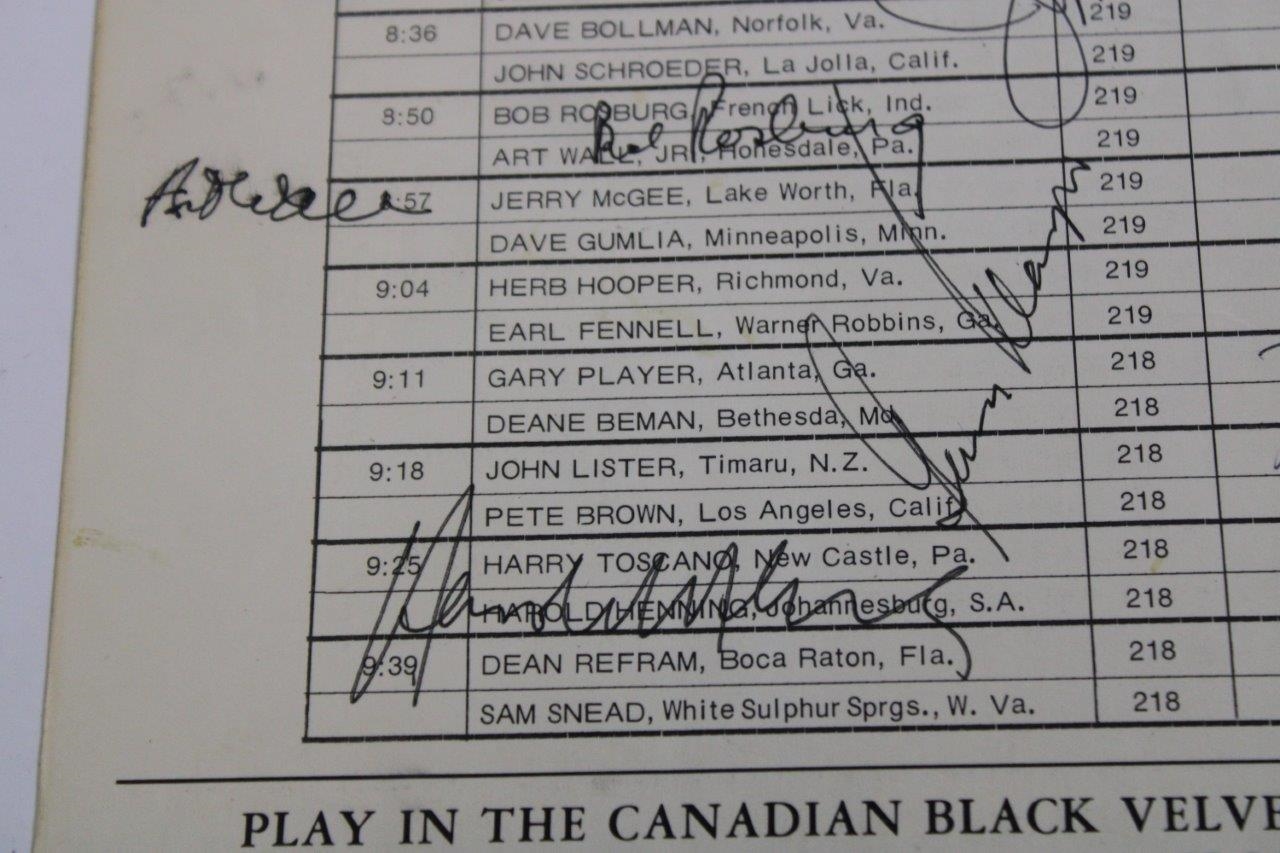 219
8:36 DAVE BOLLMAN, Norfolk, Va.
JOHN SCHROEDER, La Jolla, Calif. 219
8:50 BOB ROSBURG, French Lick, Ind. 219
Bob Rosburg
ART WALL, JR., Honesdale, Pa. 219
Art Wall
8:57 JERRY McGEE, Lake Worth, Fla. 219
DAVE GUMLIA, Minneapolis, Minn. 219
9:04 HERB HOOPER, Richmond, Va. 219
EARL FENNELL, Warner Robbins, Ga. 219
9:11 GARY PLAYER, Atlanta, Ga. 218
DEANE BEMAN, Bethesda, Md. 218
9:18 JOHN LISTER, Timaru, N.Z. 218
PETE BROWN, Los Angeles, Calif. 218
9:25 HARRY TOSCANO, New Castle, Pa. 218
HAROLD HENNING, Johannesburg, S.A. 218
Harold Henning
9:39 DEAN REFRAM, Boca Raton, Fla. 218
SAM SNEAD, White Sulphur Sprgs., W. Va. 218
PLAY IN THE CANADIAN BLACK VELVE